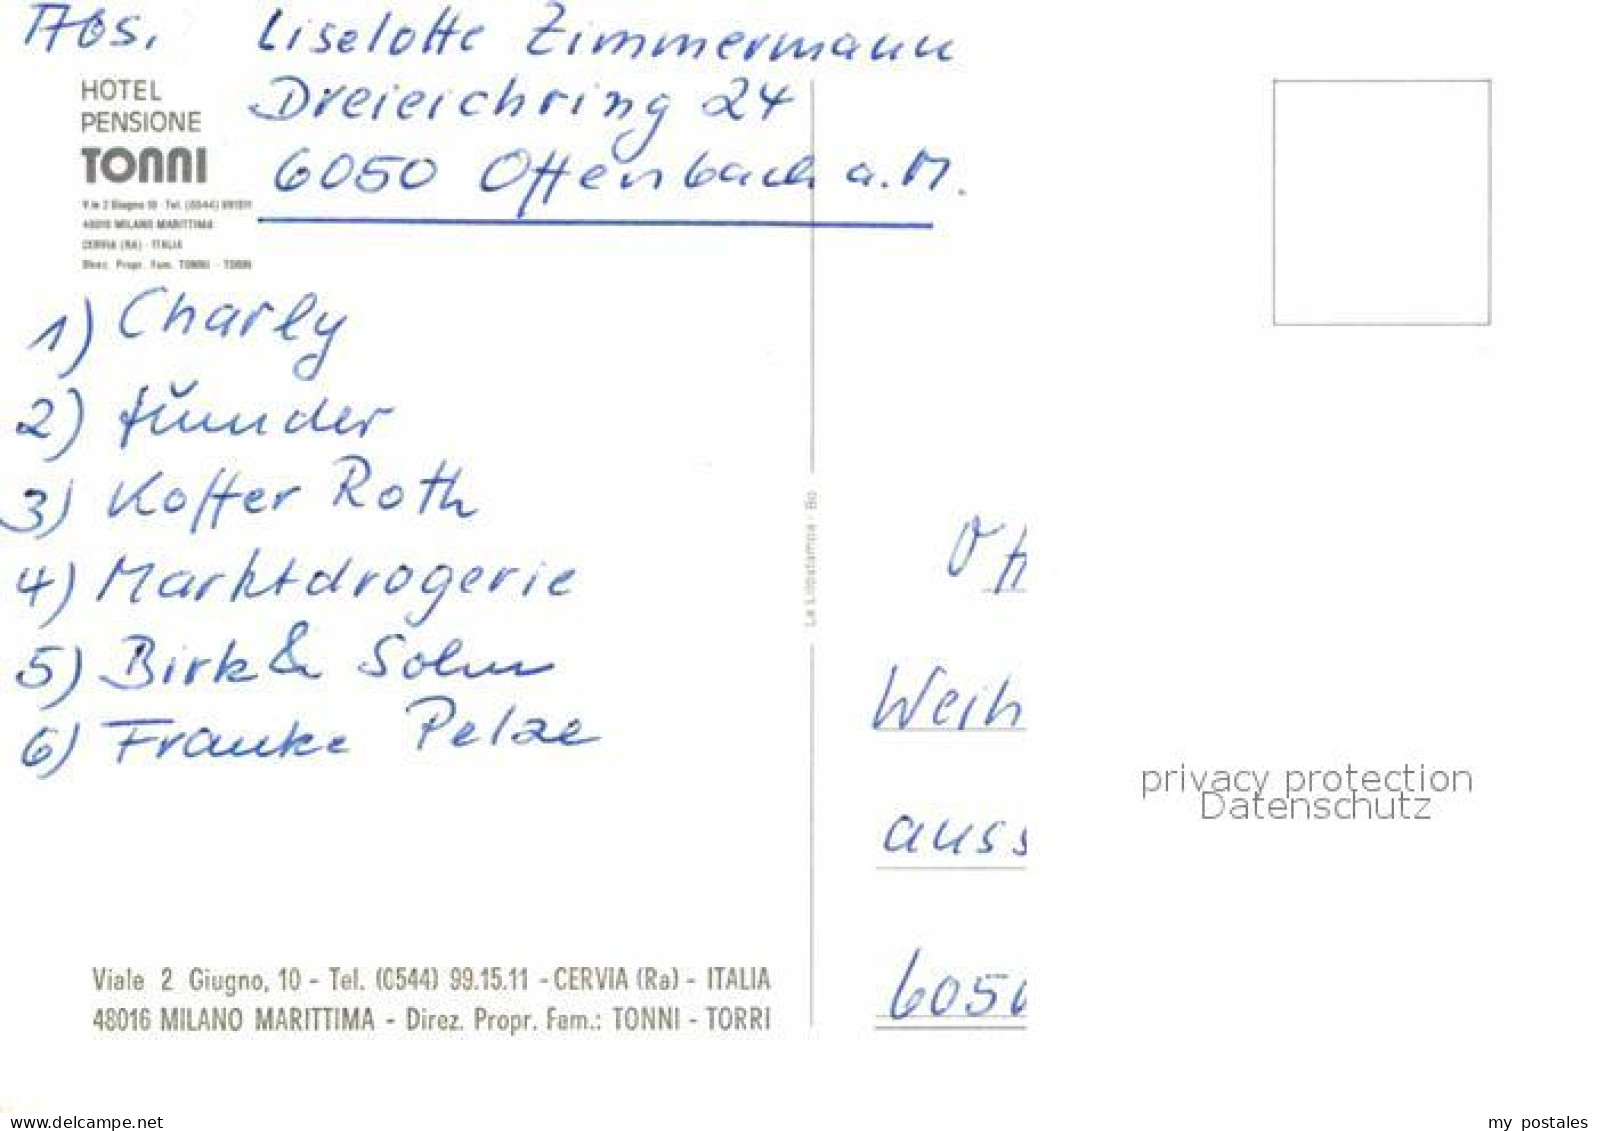 Abs. Liselotte Zimmermann
Dreieichring 24
6050 Offenbach a.M.
HOTEL
PENSIONE
TONNI
V.le 2 Giugno 10 - Tel. (0544) 991511
48016 MILANO MARITTIMA
CERVIA (RA) - ITALIA
Direz. Propr. Fam. TONNI - TORRI
1) Charly
2)
3) Koffer Roth
4) Marktdrogerie
5) Birk & Sohn
6) Franke Pelze
La Litostampa - Bo
Off
Weih
auss
6050
privacy protection
Datenschutz
Viale 2 Giugno, 10 - Tel. (0544) 99.15.11 - CERVIA (Ra) - ITALIA
48016 MILANO MARITTIMA - Direz. Propr. Fam.: TONNI - TORRI
www.delcampe.net
my postales